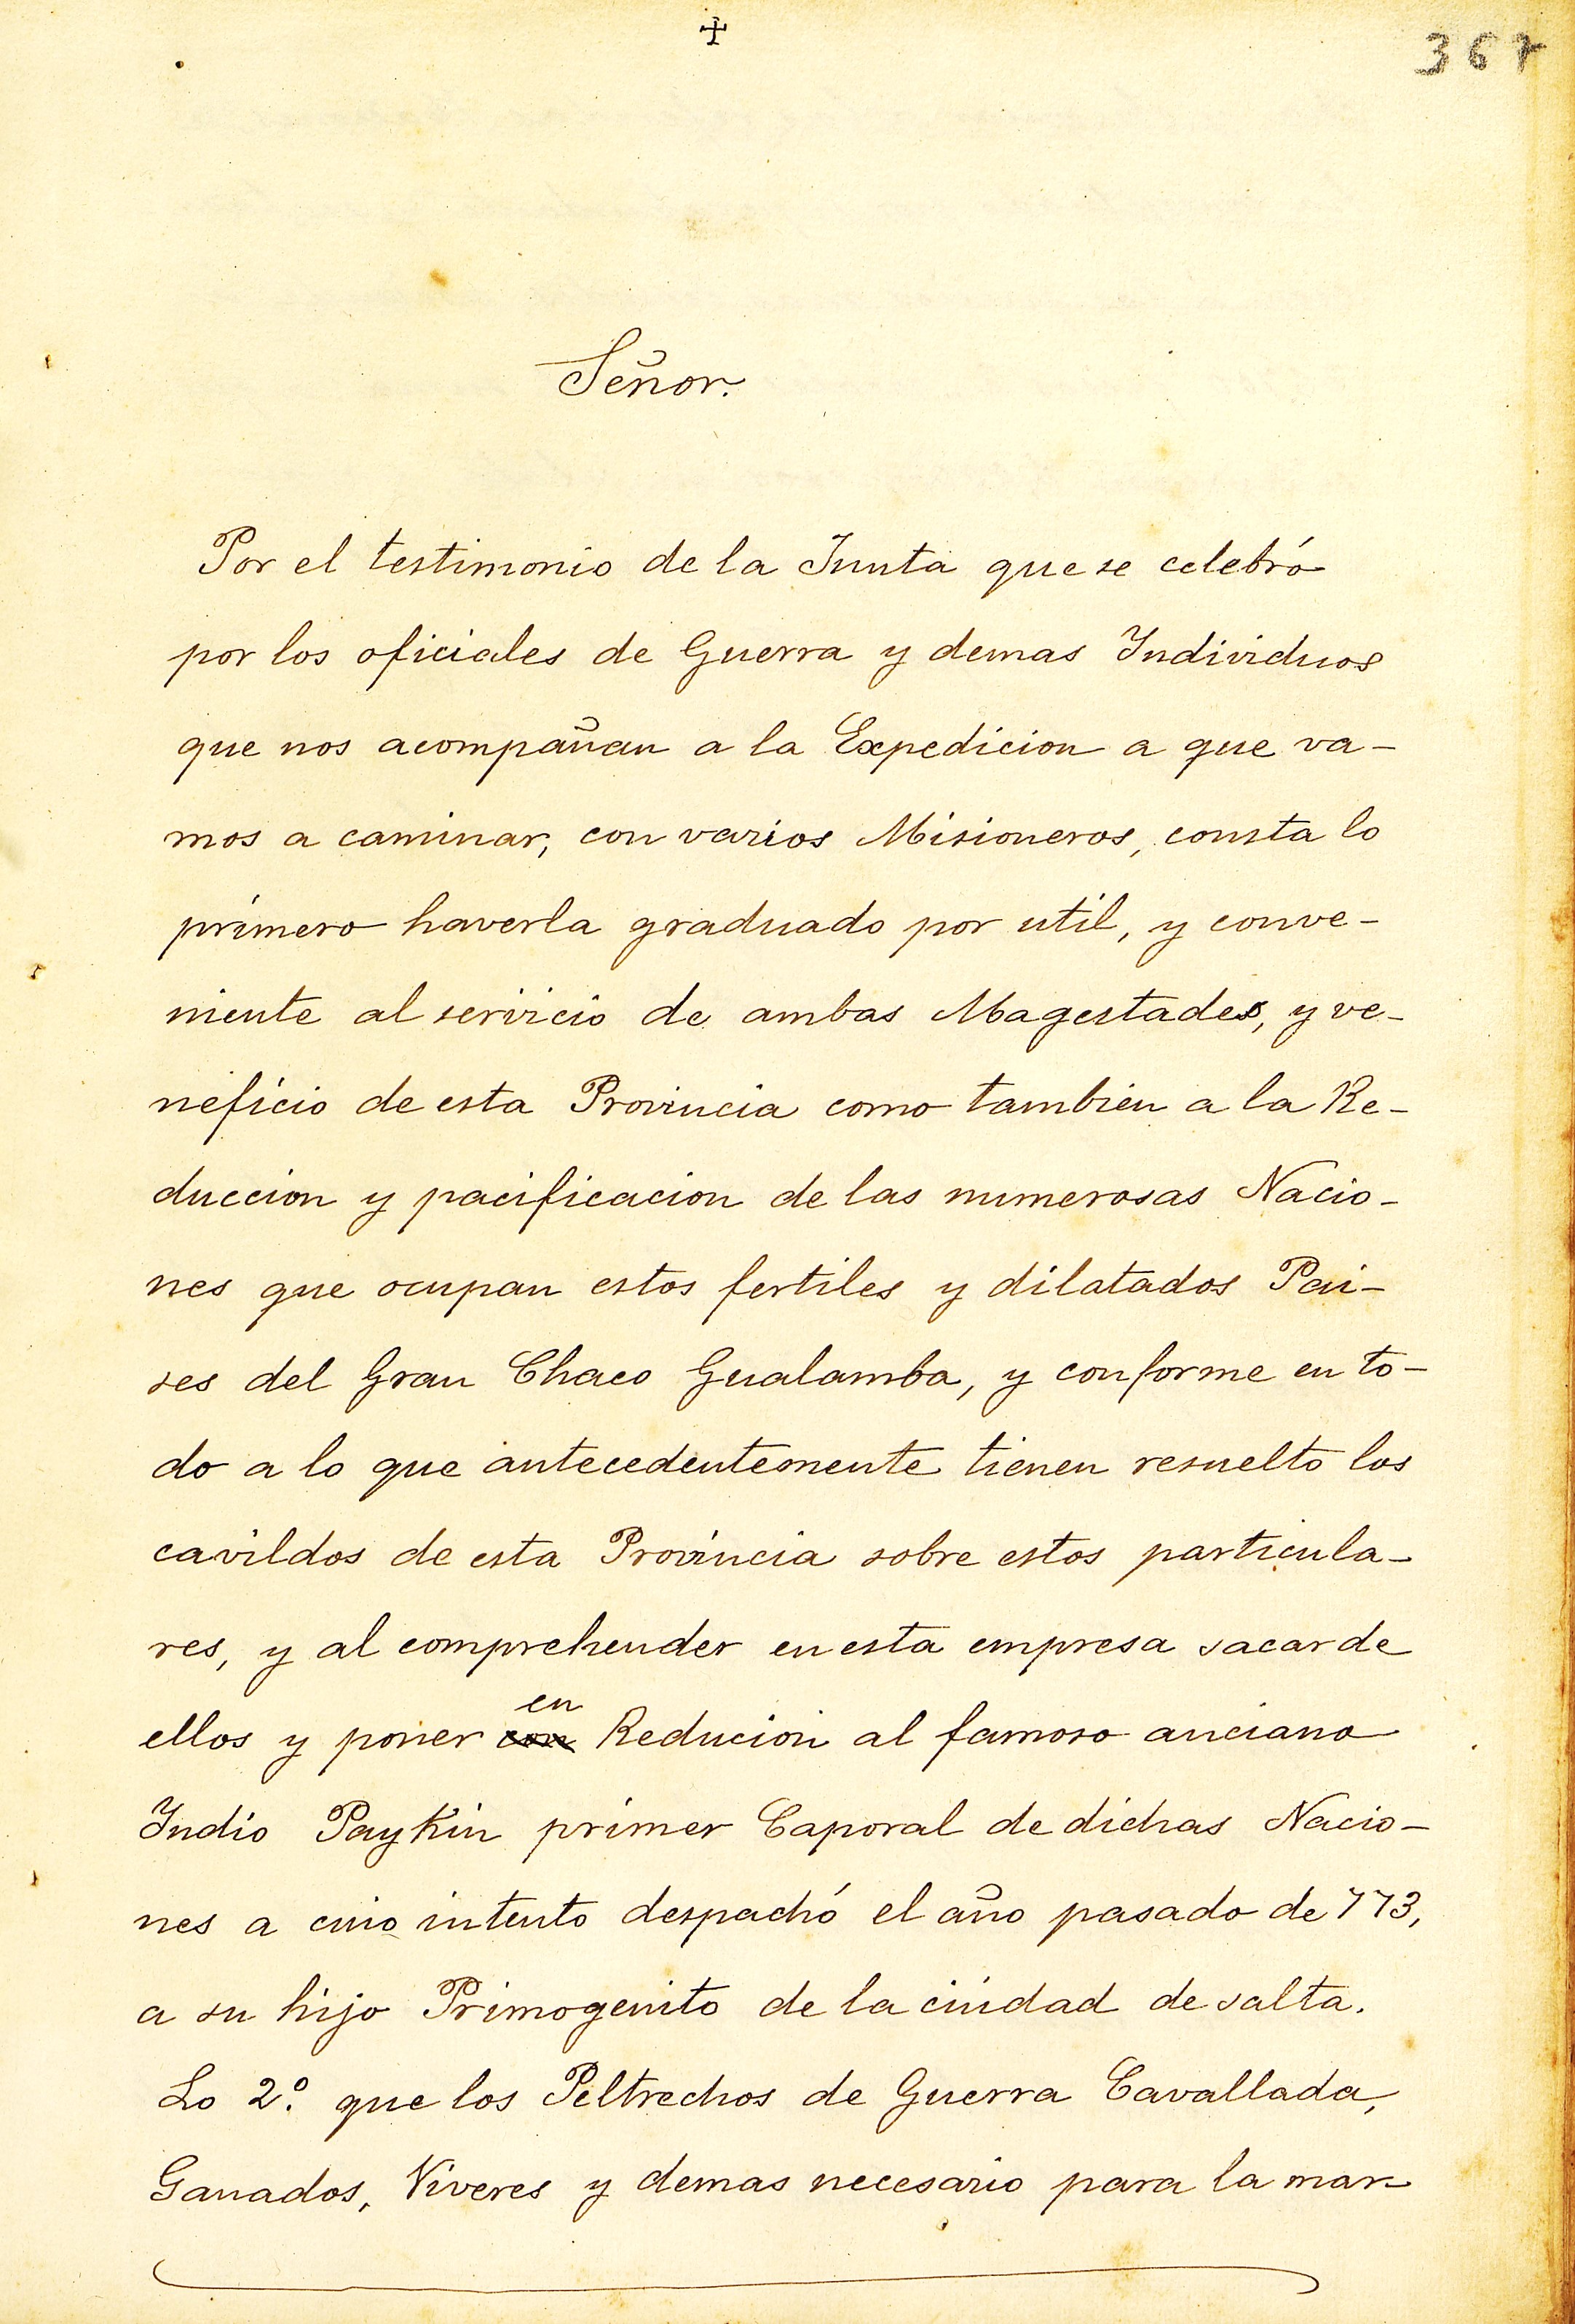 ✝
367
Señor.
Por el testimonio de la Junta que se celebró
por los oficiales de Guerra y demas Individuos
que nos acompañan a la Expedicion a que va-
mos a caminar, con varios Misioneros, consta lo
primero haverla graduado por util, y conve-
niente al servicio de ambas Magestades, y ve-
neficio de esta Provincia como tambien a la Re-
duccion y pacificacion de las numerosas Nacio-
nes que ocupan estos fertiles y dilatados Pai-
ses del Gran Chaco Gualamba, y conforme en to-
do a lo que antecedentemente tienen resuelto los
cavildos de esta Provincia sobre estos particula-
res, y al comprehender en esta empresa sacar de
en
ellos y poner con Reducion al famoso anciano
Indio Paykin primer Caporal de dichas Nacio-
nes a cuio intento despachó el año pasado de 773,
a su hijo Primogenito de la ciudad de salta.
Lo 2.º que los Peltrechos de Guerra Cavallada,
Ganados, Viveres y demas necesario para la mar-